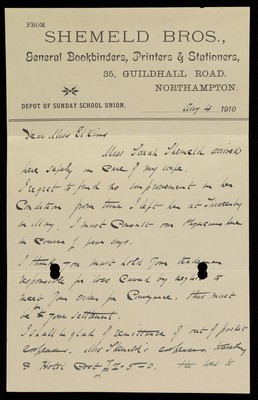 FROM
SHEMELD BROS.,
General Bookbinders, Printers & Stationers,
35, GUILDHALL ROAD,
NORTHAMPTON.
DEPOT OF SUNDAY SCHOOL UNION.
Aug 4 1910
Dear Miss Elkins
Miss Sarah Shemeld arrived
here safely in care of my wife.
I regret to find no improvement in her
Condition from time I left her at
in May. I must consult our Physician here
in course of few days.
I think you must hold your tradesman
responsible for loss caused by neglect to
meet your order for Conveyance. this must
be your settlement.
I shall be glad of remittance of out of pocket
expenses. Miss Shemeld's expenses, travelling
& Hotel Cost £2-5-0. She has to